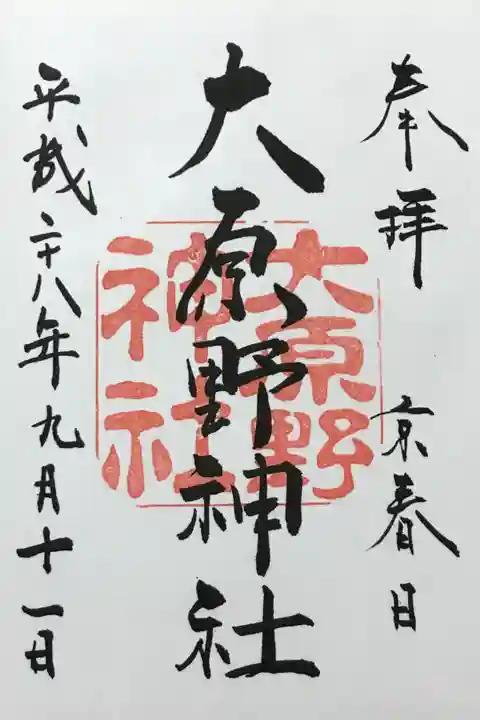 奉拝 京春日
大原野神社
大原野神社
平成二十八年九月十一日